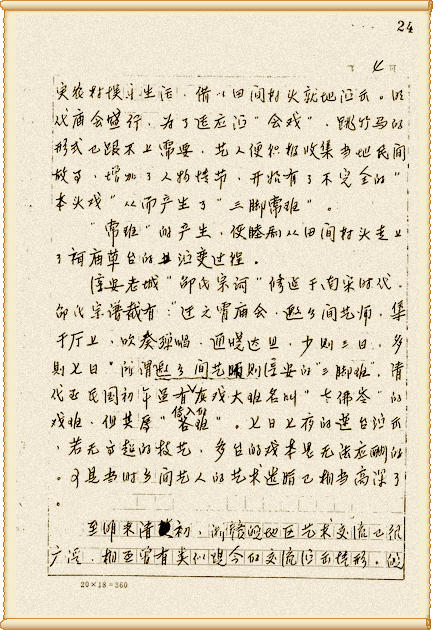 24
4
实农村娱乐生活,借以田间打火就地演示。明
代庙会盛行,为了适应演“会戏”,跳竹马的
形式已跟不上需要,艺人便积极收集当地民间
故事,增加了人物情节,开始有了不完全的“
本头戏”从而产生了“三脚常班”。
“常班”的产生,使睦剧从田间打火走上
了祠庙草台的演变过程。
淳安老城“邵氏宗祠”修造于南宋时代,
邵氏宗谱载有:“过元宵庙会,邀乡间艺师,集
于厅上,吹奏弹唱,通晓达旦,少则三日,多
则七日”所谓邀乡间艺师则淳安的“三脚班”,清
代至民国初年还有戏大班名叫“七佛签”的
戏班,但其属“班”。七日七夜的连台演示
,若无高超的技艺,多台的戏本是无法应酬的
。可是当时乡间艺人的艺术造诣已相当高深了
。
至明末清初,浙赣皖地区艺术交流已很
广泛,相互当有类似现今的交流演示情形。
20×18=360